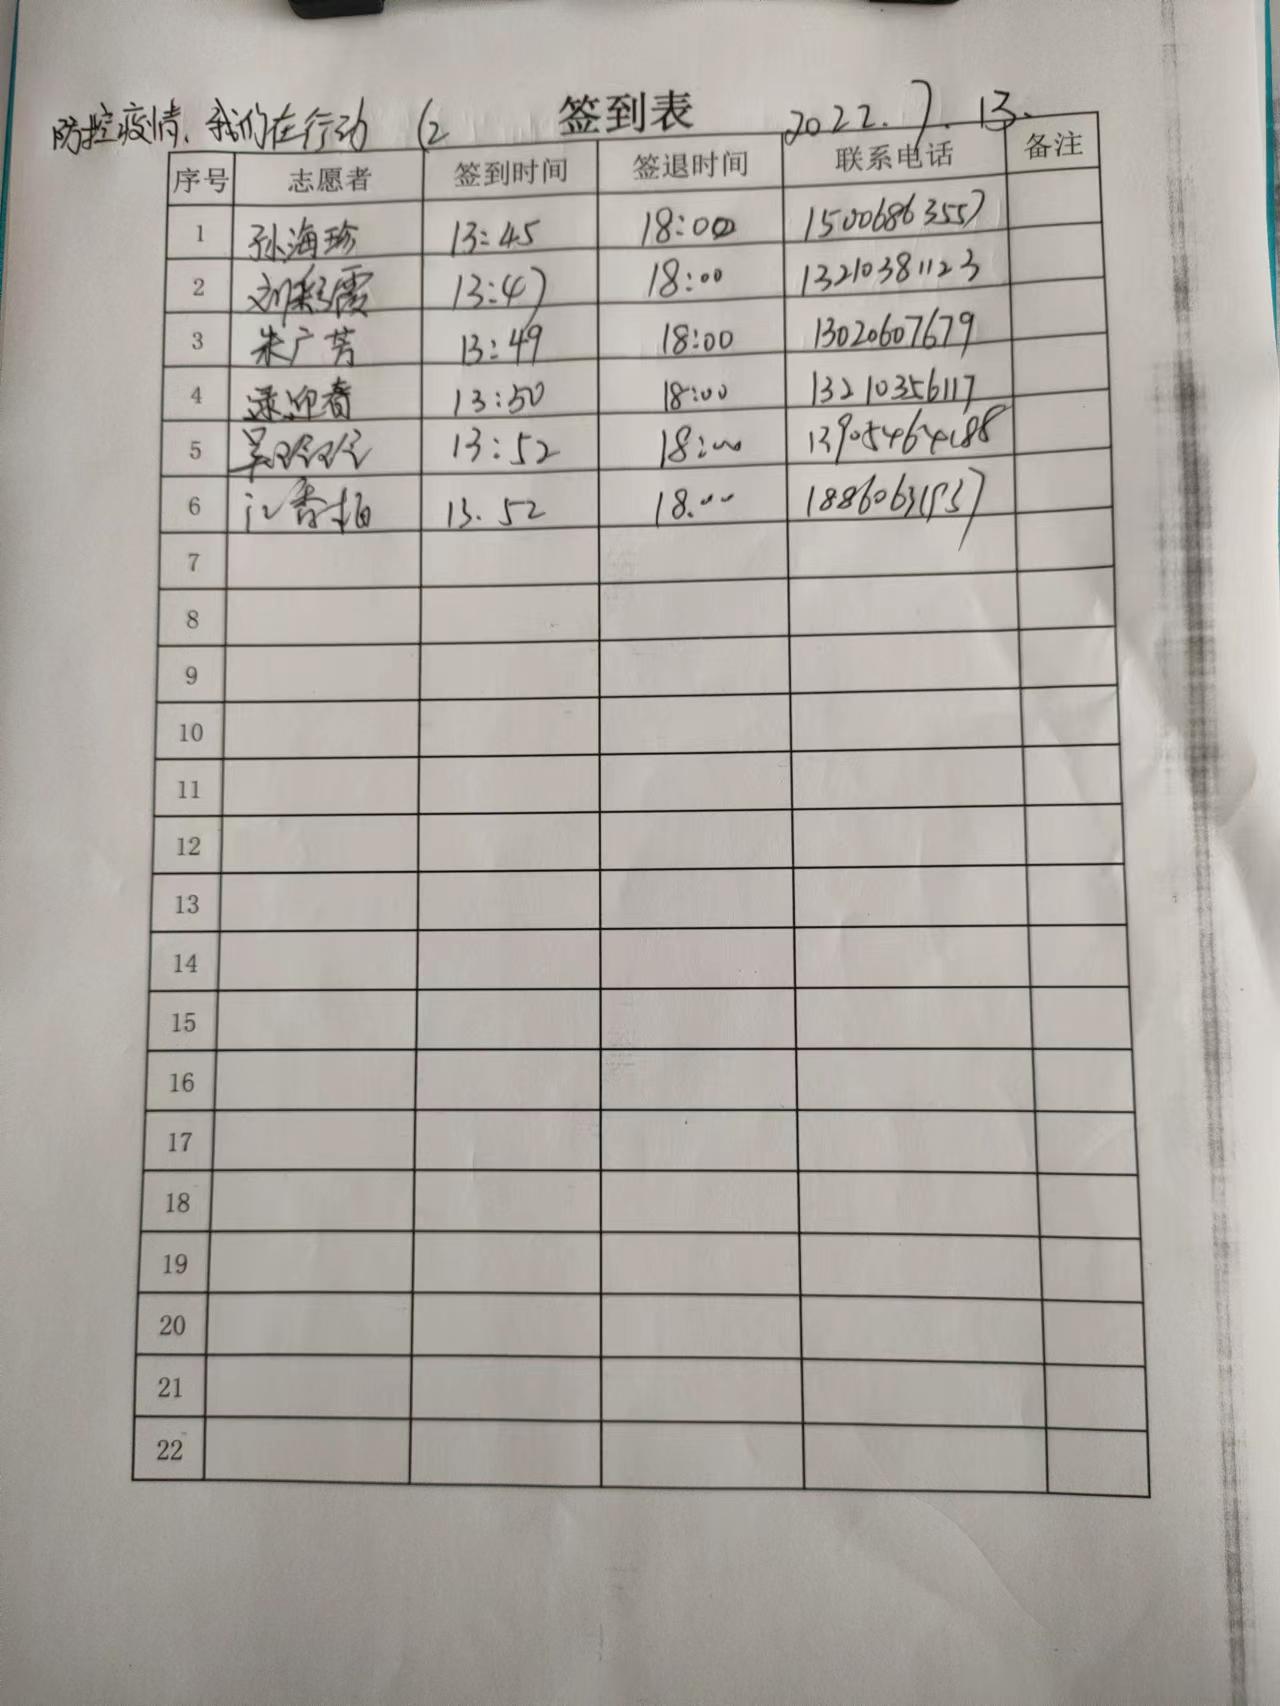 防控疫情、我们在行动 (2 签到表 2022.7.13.
序号 志愿者 签到时间 签退时间 联系电话 备注
1 孙海珍 13:45 18:00 15006863557
2 刘彩霞 13:47 18:00 13210381123
3 朱广芳 13:49 18:00 13020607679
4 迎春 13:50 18:00 13210356117
5 13:52 18:00
6 13.52 18.00
7
8
9
10
11
12
13
14
15
16
17
18
19
20
21
22